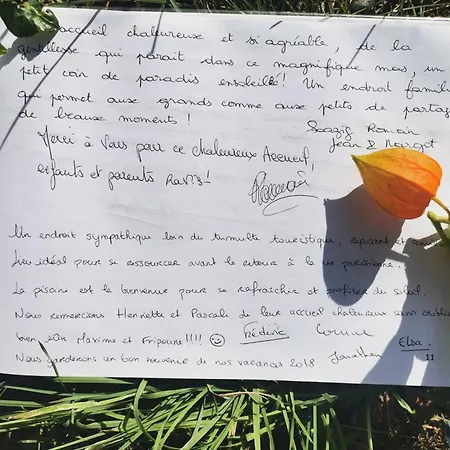 accueil chaleureux et si agréable, de la
gentillesse qui parait dans ce magnifique mas, un
petit coin de paradis ensoleillé! Un endroit famili
qui permet aux grands comme aux petits de partag
de beaux moments !
Romain
Jean & Margot
Merci à Vous pour ce chaleureux Accueil,
enfants et parents Ravis!
Un endroit sympathique loin du tumulte touristique, reposant et
lieu idéal pour se ressourcer avant le retour à la vie parisienne.
La piscine est la bienvenue pour se rafraîchir et profiter du soleil.
Nous remercions Henriette et Pascal de leur accueil chaleureux sans oublier
bien sûr Maxima et Fripouns!!!! ☺ Frédéric
Elsa.
Nous garderons un bon souvenir de nos vacances 2018. Jonathan 11